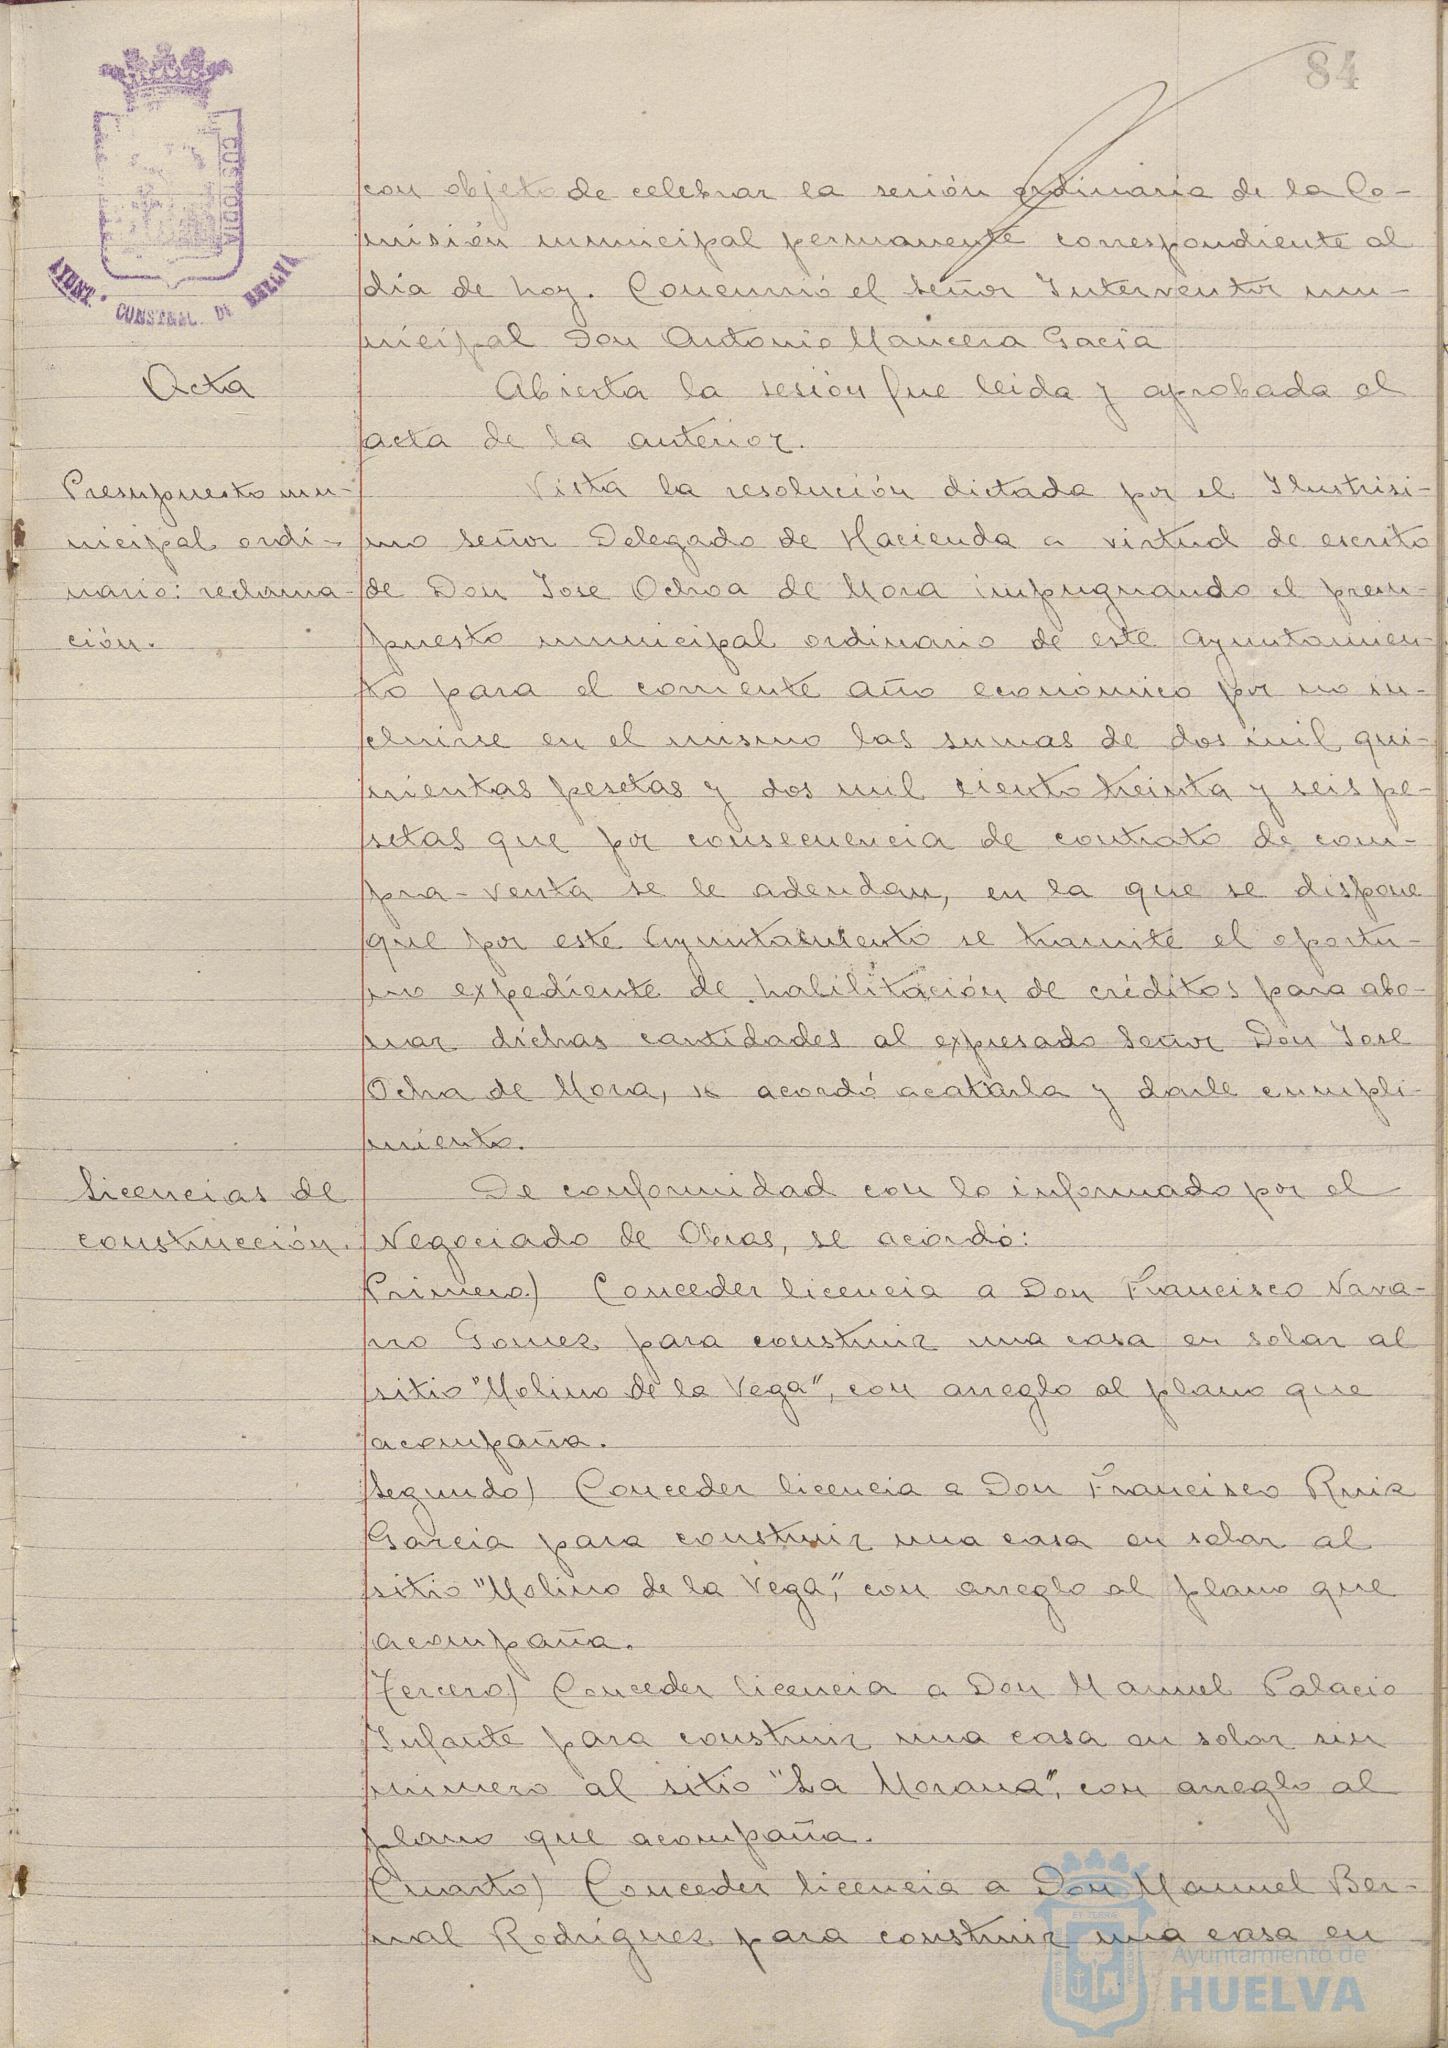 84
CUSTODIA
AYUNT. CONSTNAL. DE HUELVA
con objeto de celebrar la sesión ordinaria de la Co-
misión municipal permanente correspondiente al
día de hoy. Concurrió el señor Interventor mu-
nicipal Don Antonio Mancera Gacia
Acta
Abierta la sesión fue leida y aprobada el
acta de la anterior.
Presupuesto mu-
nicipal ordi-
nario: reclama-
ción.
Vista la resolución dictada por el Ilustrisi-
mo señor Delegado de Hacienda a virtud de escrito
de Don Jose Ochoa de Mora impugnando el presu-
puesto municipal ordinario de este Ayuntamien-
to para el corriente año económico por no in-
cluirse en el mismo las sumas de dos mil qui-
nientas pesetas y dos mil ciento treinta y seis pe-
setas que por consecuencia de contrato de com-
pra-venta se le adeudan, en la que se dispone
que por este Ayuntamiento se tramite el oportu-
no expediente de habilitación de créditos para abo-
nar dichas cantidades al expresado Señor Don Jose
Ochoa de Mora, se acordó acatarla y darle cumpli-
miento.
Licencias de
construcción.
De conformidad con lo informado por el
Negociado de Obras, se acordó:
Primero) Conceder licencia a Don Francisco Nava-
rro Gomez para construir una casa en solar al
sitio "Molino de la Vega", con arreglo al plano que
acompaña.
Segundo) Conceder licencia a Don Francisco Ruiz
Garcia para construir una casa en solar al
sitio "Molino de la Vega", con arreglo al plano que
acompaña.
Tercero) Conceder licencia a Don Manuel Palacio
Infante para construir una casa en solar sin
número al sitio "La Morana", con arreglo al
plano que acompaña.
Cuarto) Conceder licencia a Don Manuel Ber-
nal Rodríguez para construir una casa en
Ayuntamiento de
HUELVA